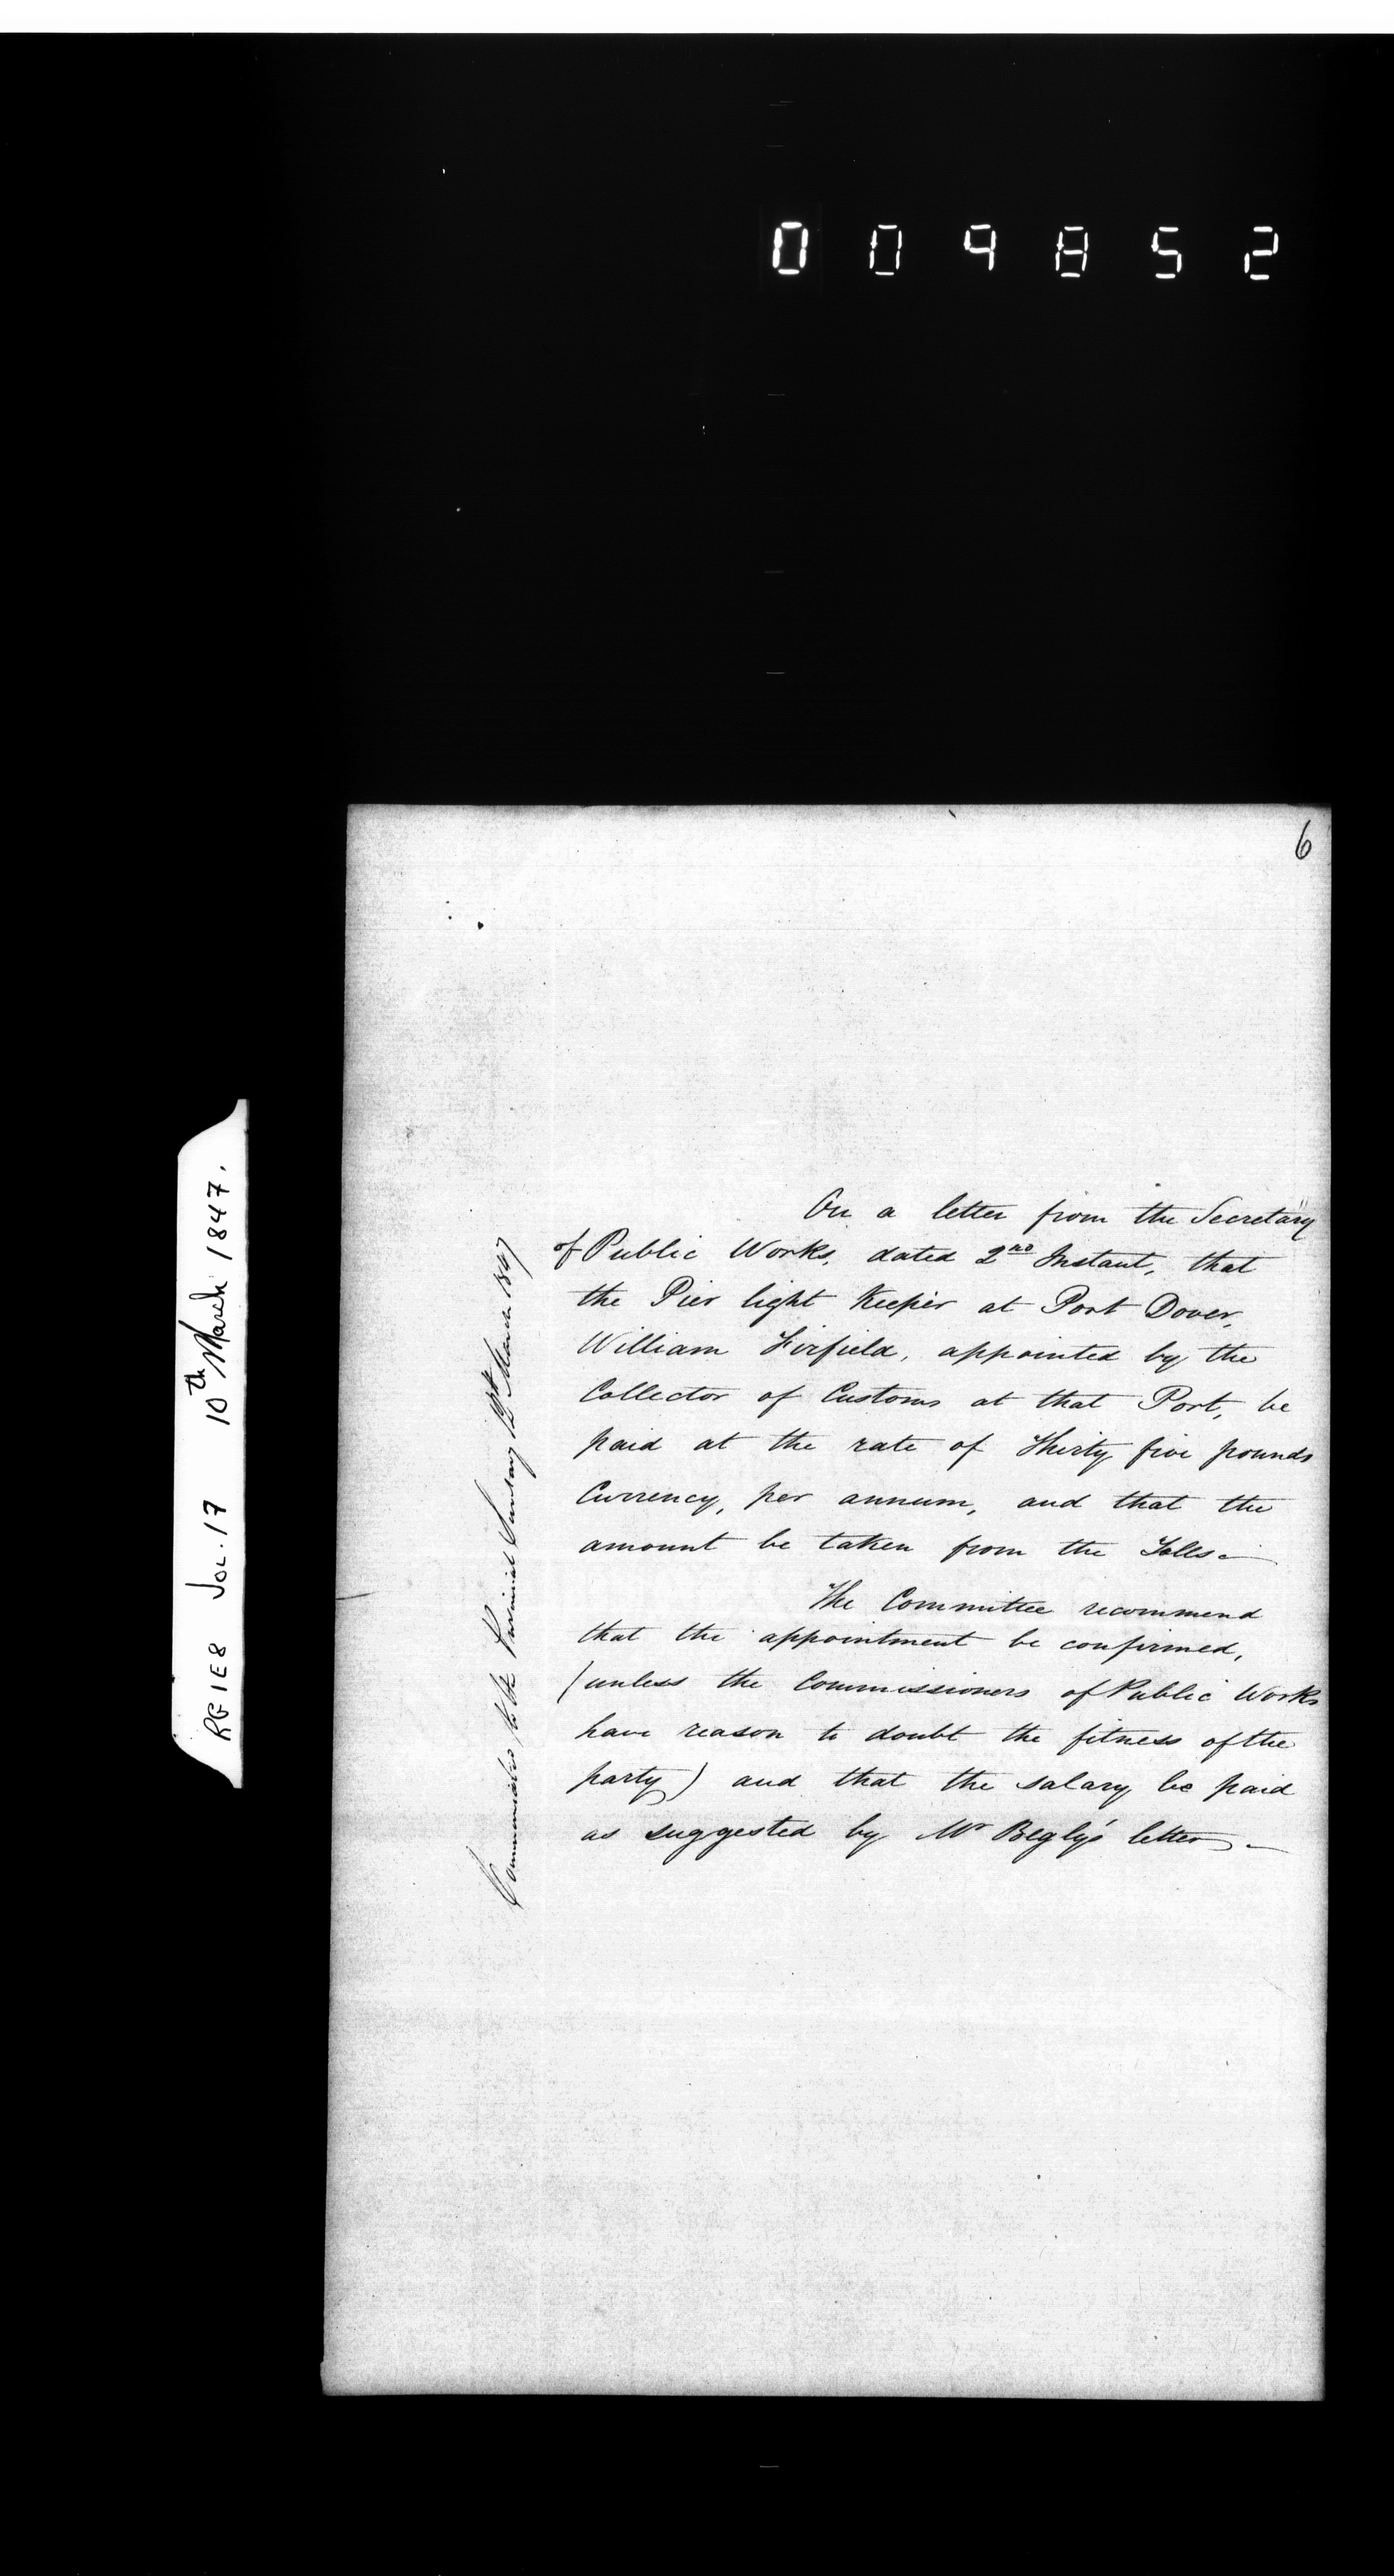 009852
6
RG1E8 Vol. 17 10th March 1847.
Communicated to the Provincial Secretary 12th March 1847
On a letter from the Secretary
of Public Works, dated 2nd Instant, that
the Pier light Keeper at Port Dover,
William Firfield, appointed by the
Collector of Customs at that Port, be
paid at the rate of Thirty five pounds
Currency, per annum, and that the
amount be taken from the Tolls.—
The Committee recommend
that the appointment be confirmed,
(unless the Commissioners of Public Works
have reason to doubt the fitness of the
party) and that the salary be paid
as suggested by Mr Begly's letter.—